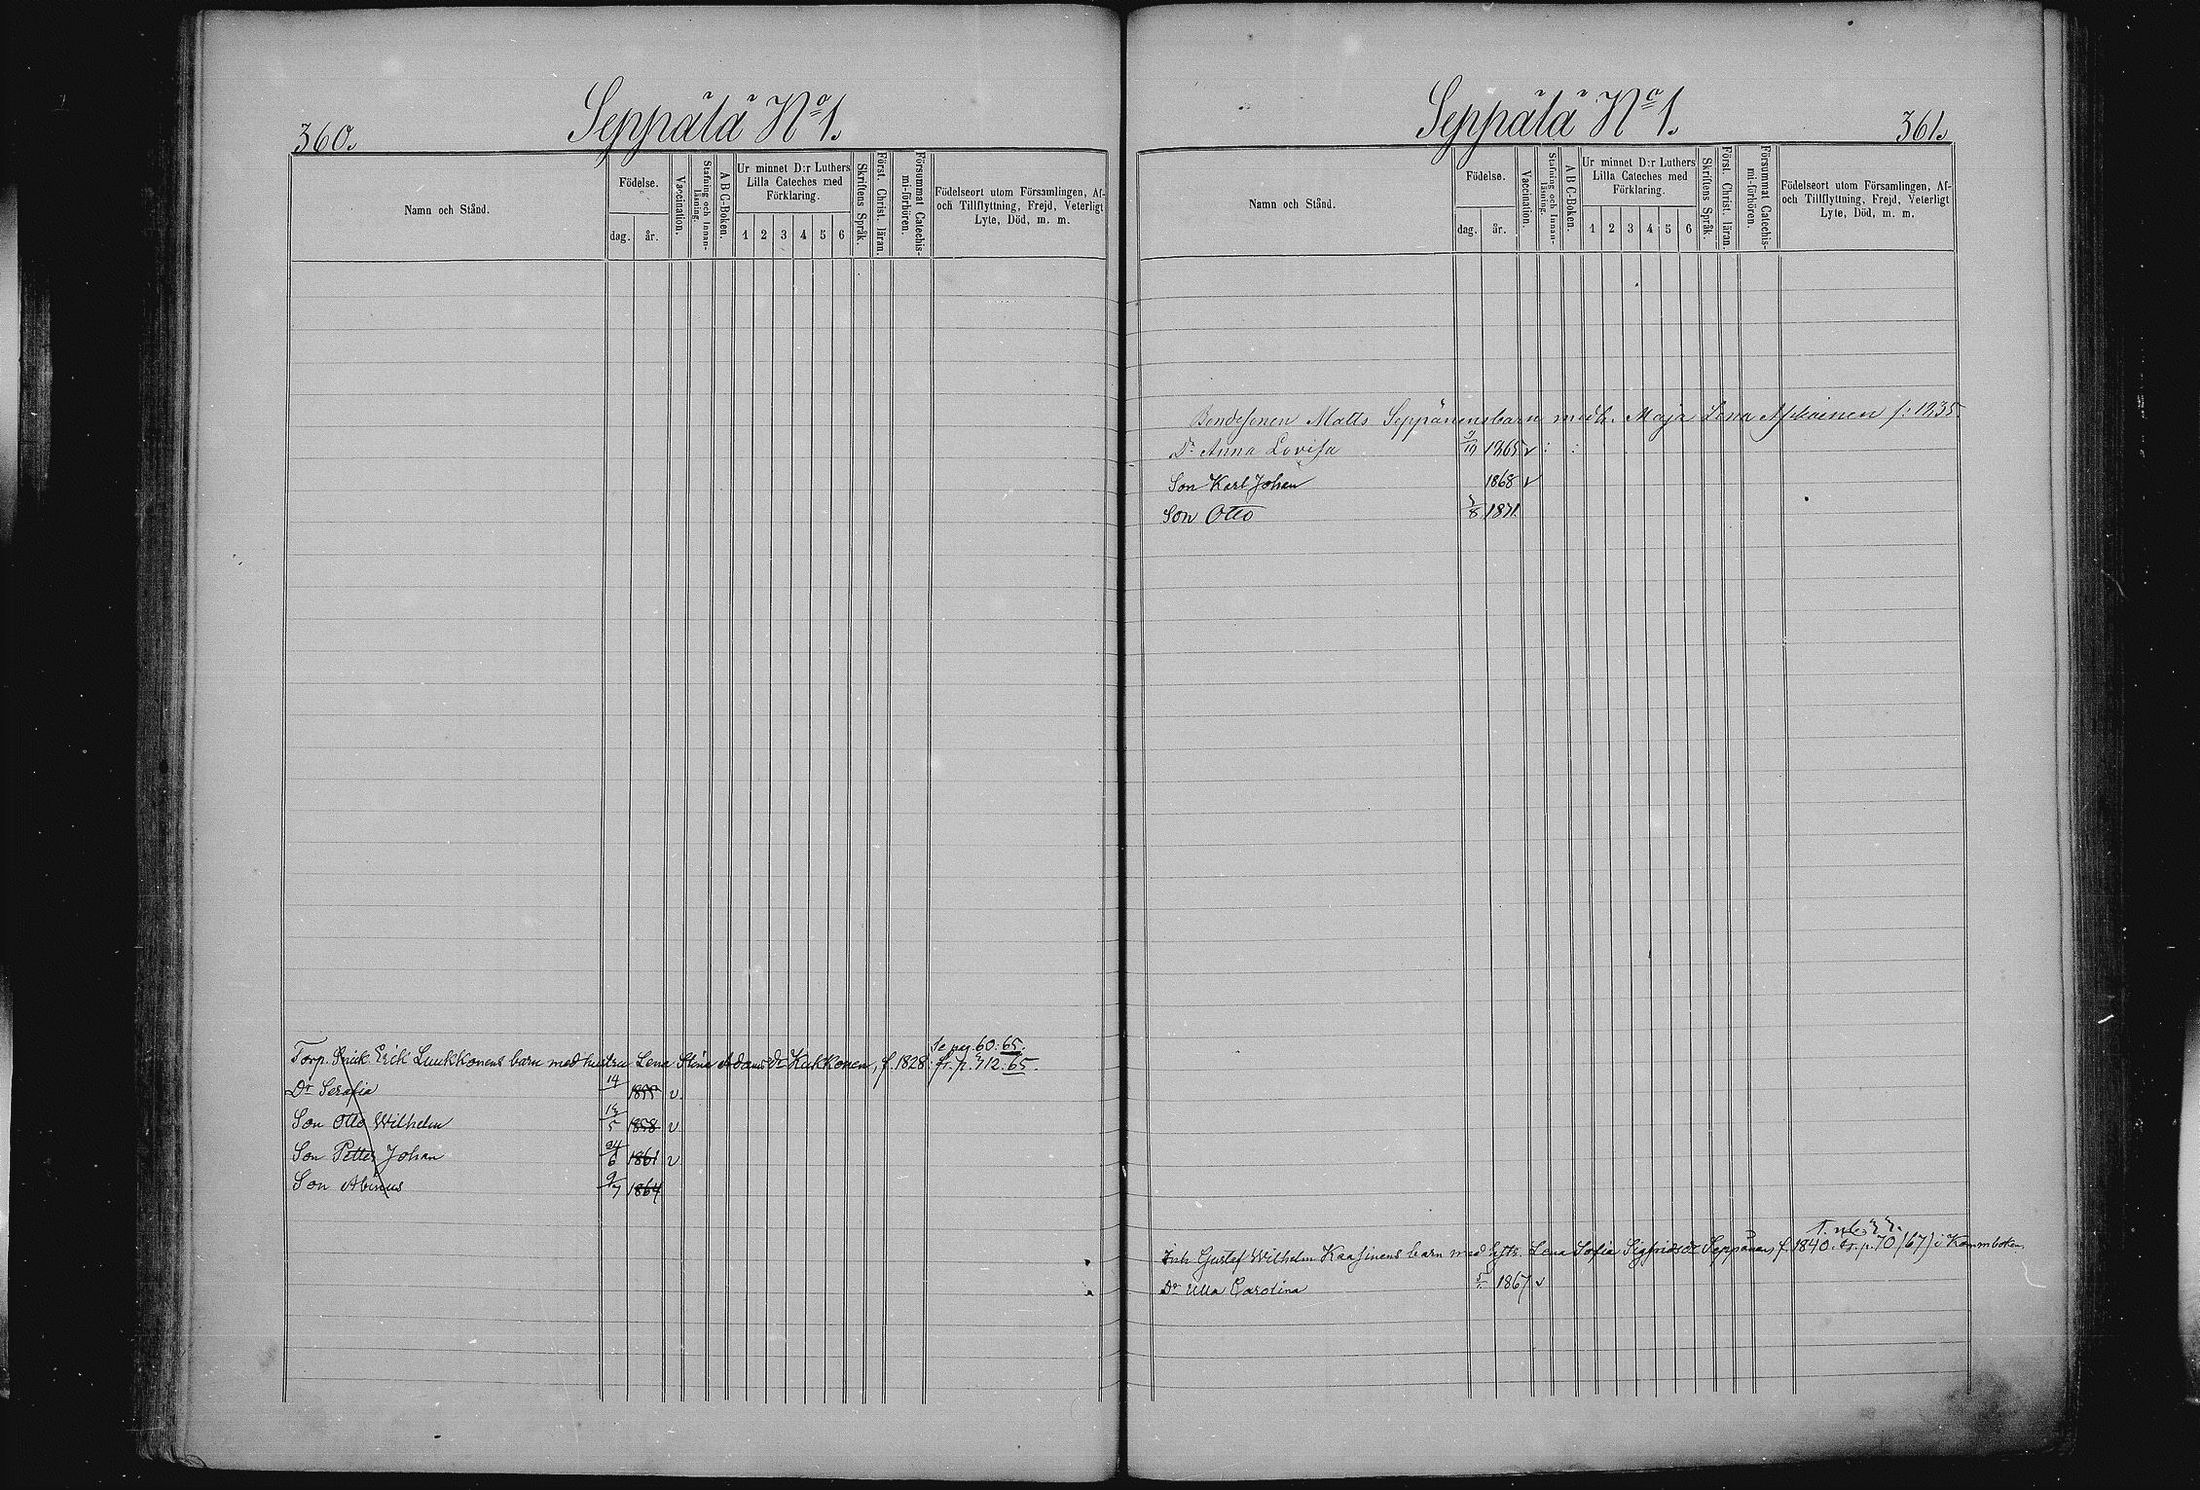 360.
Seppälä No 1.
Namn och Stånd.
Födelse.
dag.
år.
Vaccination.
Stafning och Innan-
läsning.
A B C-Boken.
Ur minnet D:r Luthers
Lilla Cateches med
Förklaring.
1 2 3 4 5 6
Skriftens Språk.
Först. Christ. läran.
Försummat Catechis-
mi-förhören.
Födelseort utom Församlingen, Af-
och Tillflyttning, Frejd, Veterligt
Lyte, Död, m. m.
Se pag. 60: 65.
Torp. Erick Luukkonens barn med hustru Lena Stina Adams Dr Kukkonen, f. 1828. fr. p. 712. 65.
Dr Serafia 14 1855 v
Son Otto Wilhelm 13/5 1858 v
Son Petter Johan 24/6 1861 v
Son Abinus 9/7 1864
Seppälä No 1.
361.
Namn och Stånd.
Födelse.
dag.
år.
Vaccination.
Stafning och Innan-
läsning.
A B C-Boken.
Ur minnet D:r Luthers
Lilla Cateches med
Förklaring.
1 2 3 4 5 6
Skriftens Språk.
Först. Christ. läran.
Försummat Catechis-
mi-förhören.
Födelseort utom Församlingen, Af-
och Tillflyttning, Frejd, Veterligt
Lyte, Död, m. m.
Bondesonen Matts Seppänens barn med h. Maja Lena f: 1835.
Dr Anna Lovisa 1865 v : :
Son Karl Johan 1868 v
Son Otto 1871.
Inh. Gustaf Wilhelm Kaasinens barn med hstr. Lena Sofia Sigfrids dr Seppänen, f. 1840. tr. p. 70 (67) i Kommboken.
Dr Ulla Carolina 1867 v